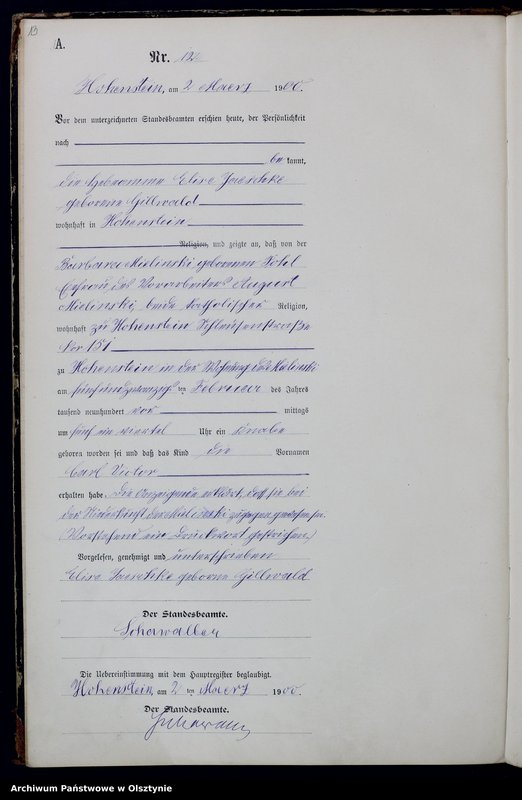 13
A.
Nr. 12
Hohenstein, am 2 Maerz 1900.
Vor dem unterzeichneten Standesbeamten erschien heute, der Persönlichkeit
nach
be kannt,
die Hebeamme Elise Jaeschke
geborene Gillwald
wohnhaft in Hohenstein
Religion, und zeigte an, daß von der
Barbara Mielinski geborenen
Ehefrau des Vorarbeiters August
Mielinski, beide katholischer Religion,
wohnhaft zu Hohenstein Schleusenstraße
No 151
zu Hohenstein in der Wohnung des Mielinski
am fünfundzwanzigs ten Februar des Jahres
tausend neunhundert vor mittags
um fünf ein viertel Uhr ein Knabe
geboren worden sei und daß das Kind die Vornamen
Carl Victor
erhalten habe. Die Anzeigende erklärt, daß sie bei
der Niederkunft der Mielinski zugegen gewesen sei.
(Vorstehend ein Druckwort gestrichen.)
Vorgelesen, genehmigt und unterschrieben
Elise Jaeschke geborne Gillwald
Der Standesbeamte.
Schawaller
Die Uebereinstimmung mit dem Hauptregister beglaubigt.
Hohenstein, am 2 ten Maerz 1900.
Der Standesbeamte.
Archiwum Państwowe w Olsztynie